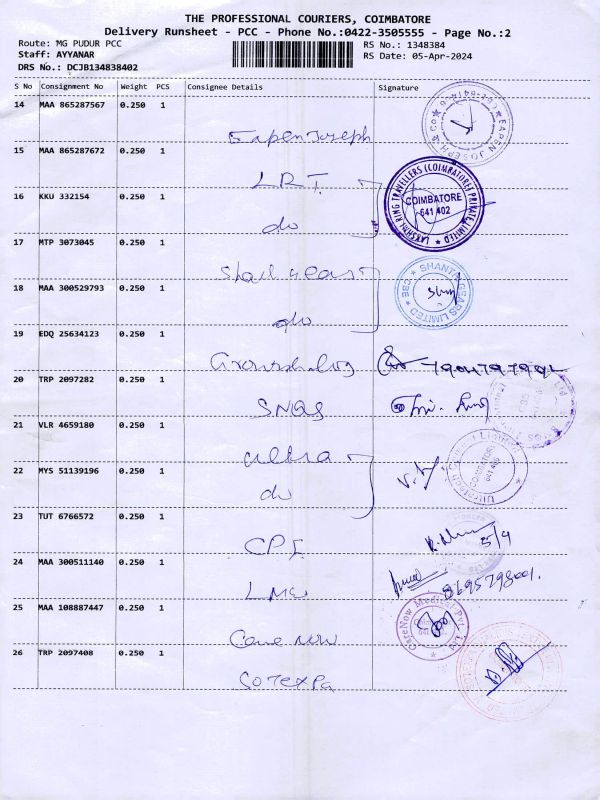 THE PROFESSIONAL COURIERS, COIMBATORE
Delivery Runsheet - PCC - Phone No.:0422-3505555 - Page No.:2
Route: MG PUDUR PCC
RS No.: 1348384
Staff: AYYANAR
RS Date: 05-Apr-2024
DRS No.: DCJB134838402
S No Consignment No Weight PCS Consignee Details Signature
14 MAA 865287567 0.250 1
Eapen Joseph
EAPEN JOSEPH & CO
15 MAA 865287672 0.250 1
LRT
LAKSHMI RING TRAVELLERS (COIMBATORE) PRIVATE LIMITED
COIMBATORE
641 402
16 KKU 332154 0.250 1
do
17 MTP 3073045 0.250 1
SHANTHI GEARS LIMITED
CBE
18 MAA 300529793 0.250 1
do
19 EDQ 25634123 0.250 1
20 TRP 2097282 0.250 1
SNQS
21 VLR 4659180 0.250 1
ultra
22 MYS 51139196 0.250 1
do
COIMBATORE
23 TUT 6766572 0.250 1
CPI
5/4
24 MAA 300511140 0.250 1
LMW
25 MAA 108887447 0.250 1
Care Now
CareNow Medical Pvt. Ltd
26 TRP 2097408 0.250 1
Sotexpa